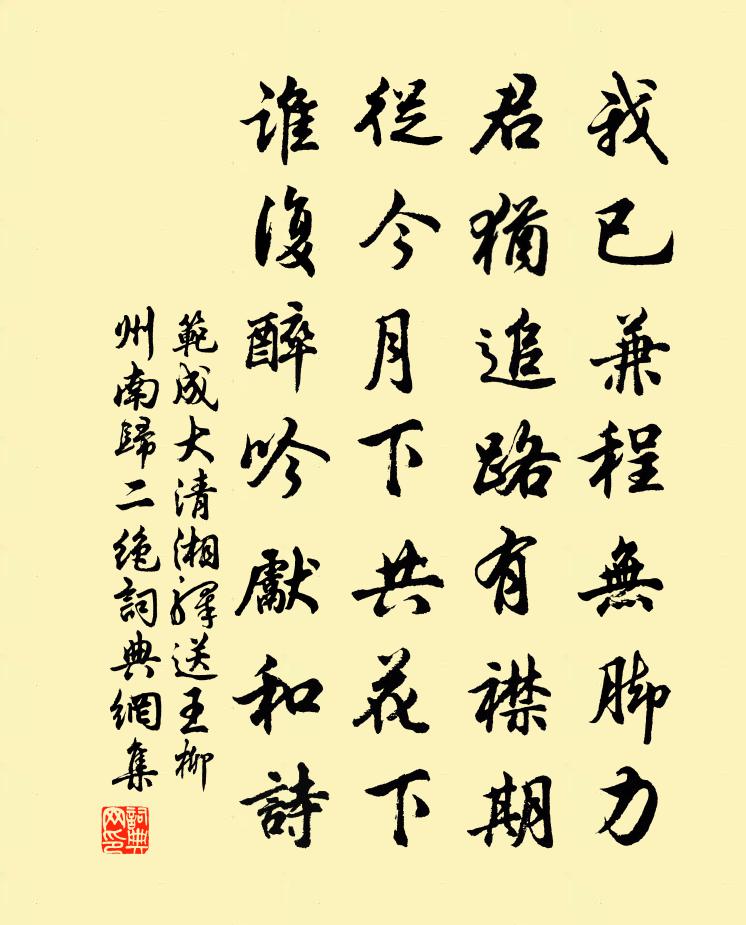 我已兼程無脚力
君猶追路有襟期
從今月下共花下
誰復醉吟獻和詩
範成大清湘驛送王柳
州南歸二絶詞典網集
詞典网印